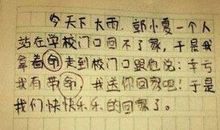 今天下大雨,邱小夏一个人
站在学校门口回不了家,于是我
拿着命走到校门口跟他说:于
我有带命,我送你回家吧!于是
我们快快乐乐的回家了。